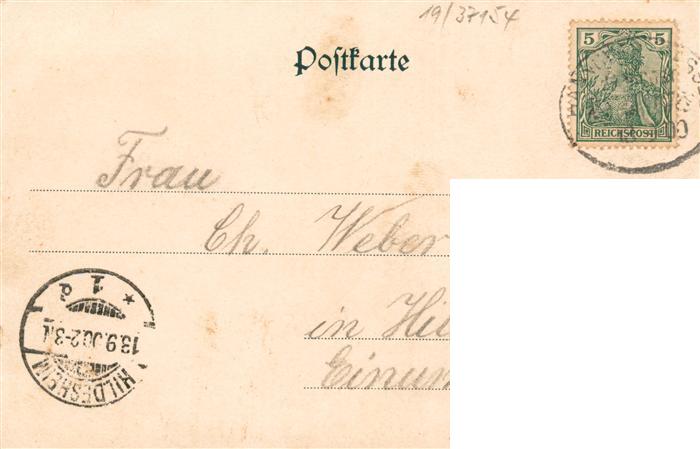 19/37154
Postkarte
5 5
REICHSPOST
Frau
Ch. Weber
in Hil
Einum
HILDESHEIM
13.9.00.2-3N.
* 1 d